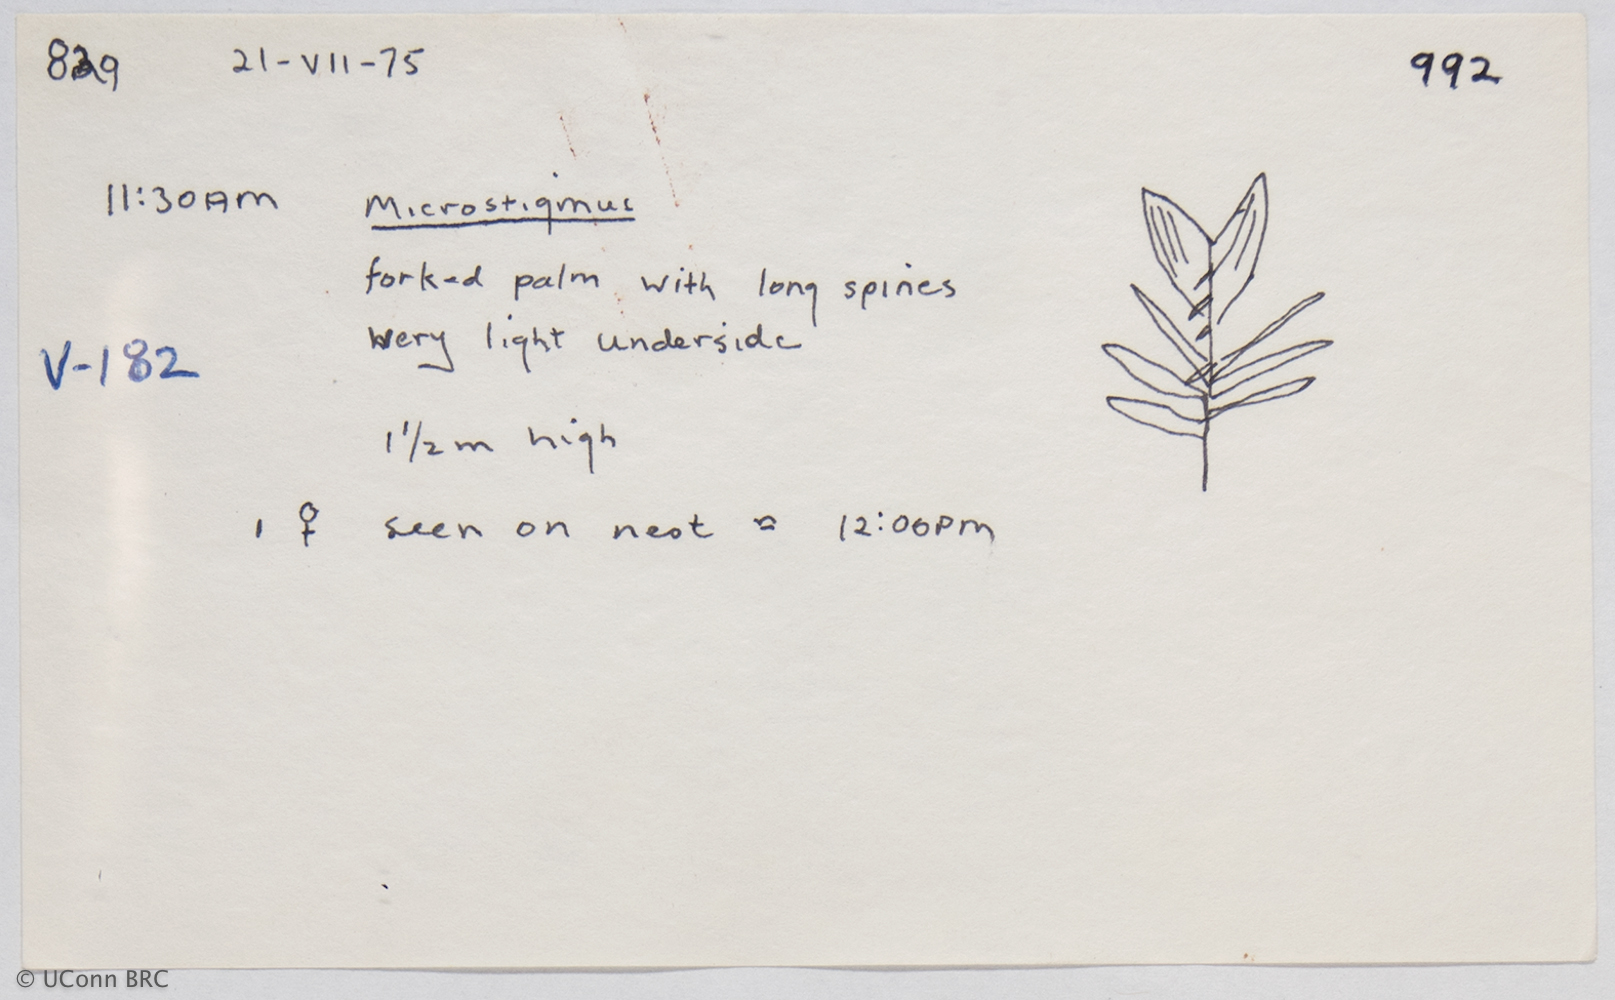 829 21-VII-75 992
11:30AM Microstigmus
forked palm with long spines
very light underside
V-182
1 1/2 m high
1 ♀ seen on nest ≈ 12:00PM
© UConn BRC